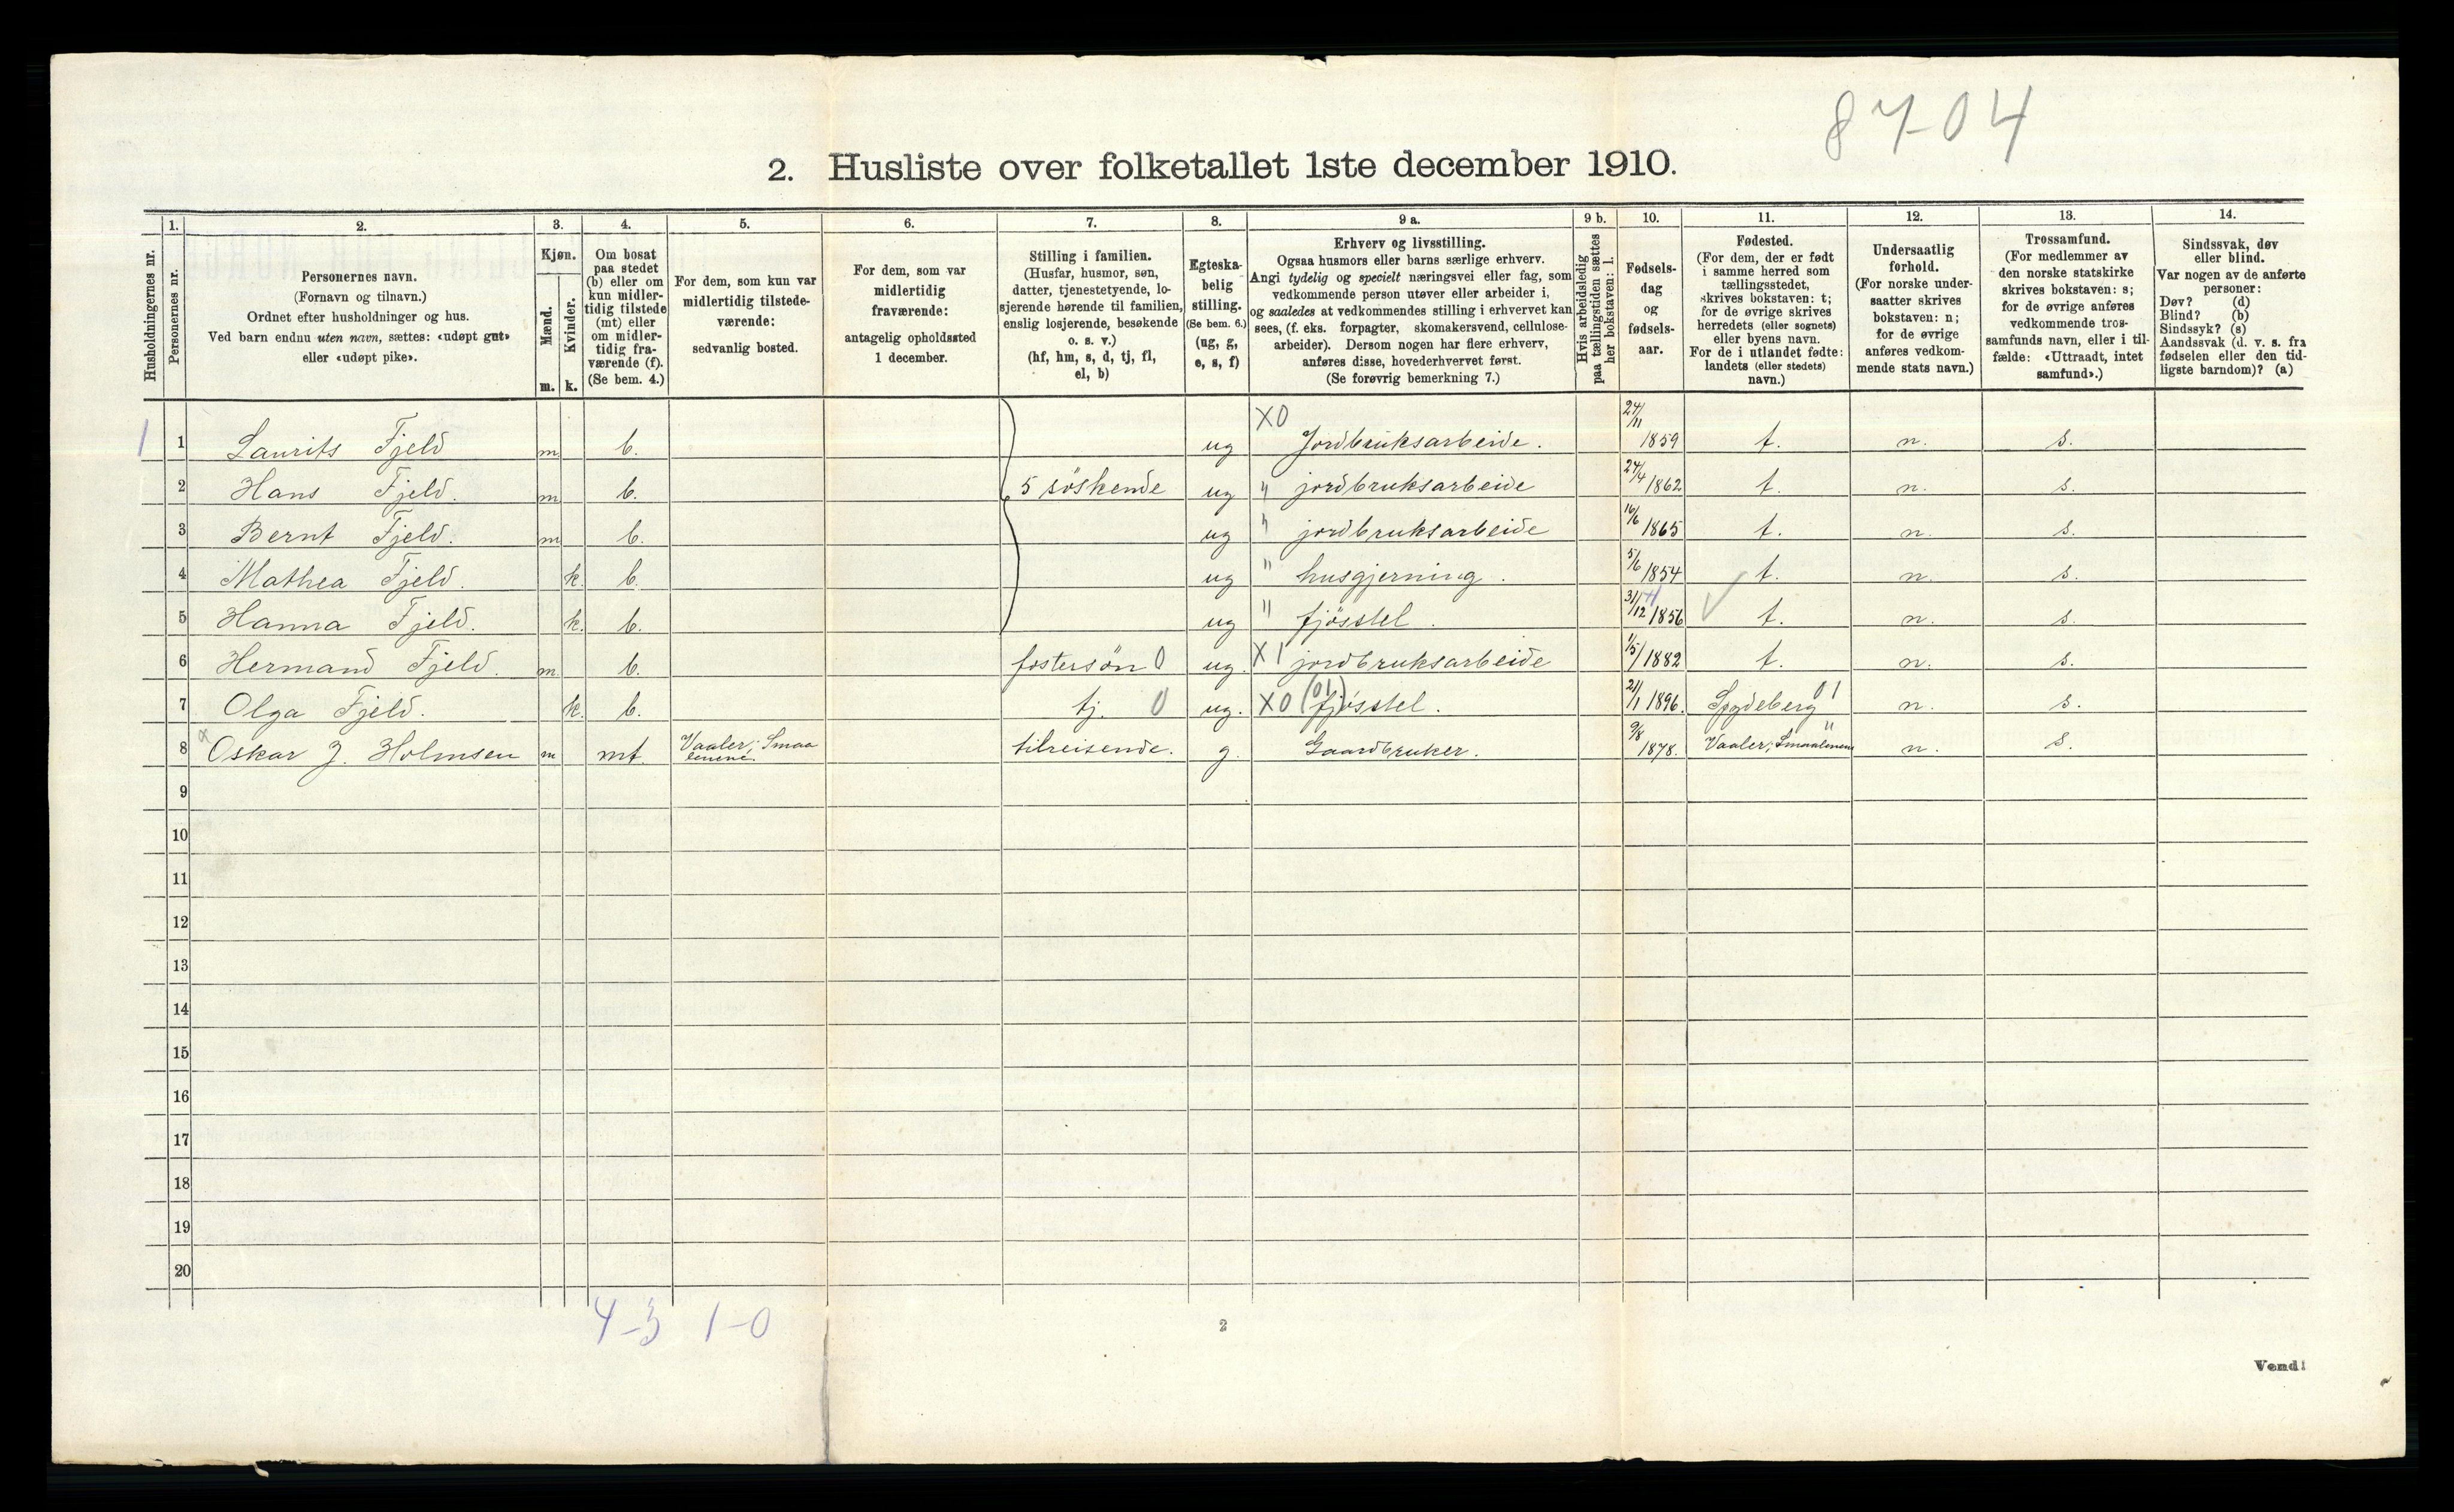 87-04
2. Husliste over folketallet 1ste december 1910.
Husholdningernes nr.
1. Personernes nr.
2. Personernes navn.
(Fornavn og tilnavn.)
Ordnet efter husholdninger og hus.
Ved barn endnu uten navn, sættes: «udøpt gut»
eller «udøpt pike».
3. Kjøn.
Mænd. m.
Kvinder. k.
4. Om bosat
paa stedet
(b) eller om
kun midler-
tidig tilstede
(mt) eller
om midler-
tidig fra-
værende (f).
(Se bem. 4.)
5. For dem, som kun var
midlertidig tilstede-
værende:
sedvanlig bosted.
6. For dem, som var
midlertidig
fraværende:
antagelig opholdssted
1 december.
7. Stilling i familien.
(Husfar, husmor, søn,
datter, tjenestetyende, lo-
sjerende hørende til familien,
enslig losjerende, besøkende
o. s. v.)
(hf, hm, s, d, tj, fl,
el, b)
8. Egteska-
belig
stilling.
(Se bem. 6.)
(ug, g,
e, s, f)
9 a. Erhverv og livsstilling.
Ogsaa husmors eller barns særlige erhverv.
Angi tydelig og specielt næringsvei eller fag, som
vedkommende person utøver eller arbeider i,
og saaledes at vedkommendes stilling i erhvervet kan
sees, (f. eks. forpagter, skomakersvend, cellulose-
arbeider). Dersom nogen har flere erhverv,
anføres disse, hovederhvervet først.
(Se forøvrig bemerkning 7.)
9 b. Hvis arbeidsledig
paa tællingstiden sættes
her bokstaven: l.
10. Fødsels-
dag
og
fødsels-
aar.
11. Fødested.
(For dem, der er født
i samme herred som
tællingsstedet,
skrives bokstaven: t;
for de øvrige skrives
herredets (eller sognets)
eller byens navn.
For de i utlandet fødte:
landets (eller stedets)
navn.)
12. Undersaatlig
forhold.
(For norske under-
saatter skrives
bokstaven: n;
for de øvrige
anføres vedkom-
mende stats navn.)
13. Trossamfund.
(For medlemmer av
den norske statskirke
skrives bokstaven: s;
for de øvrige anføres
vedkommende tros-
samfunds navn, eller i til-
fælde: «Uttraadt, intet
samfund».)
14. Sindssvak, døv
eller blind.
Var nogen av de anførte
personer:
Døv? (d)
Blind? (b)
Sindssyk? (s)
Aandssvak (d. v. s. fra
fødselen eller den tid-
ligste barndom)? (a)
1 1 Laurits Fjeld m b. ug X0 Jordbruksarbeide. 24/11 1859 t. n. s.
2 Hans Fjeld. m b. 5 söskende ug " jordbruksarbeide 24/4 1862 t. n. s.
3 Bernt Fjeld. m b. ug " jordbruksarbeide 16/6 1865 t. n. s.
4 Mathea Fjeld. k. b. ug " husgjerning. 5/6 1854 t. n. s.
5 Hanna Fjeld. k. b. ug " fjösstel. 31/12 1856 t. n. s.
6 Hermand Fjeld. m. b. fostersön 0 ug. X1 jordbruksarbeide 1/5 1882 t. n. s.
7 Olga Fjeld. k. b. tj. 0 ug. X0 (01) fjösstel. 21/1 1896. Spydeberg 01 n. s.
8 Oskar J. Holmsen m mt. Vaaler; Smaa
lenene. tilreisende. g. Gaardbruker. 9/8 1878. Vaaler; Smaalenene " n. s.
9
10
11
12
13
14
15
16
17
18
19
20
4-3 1-0
2
Vend!